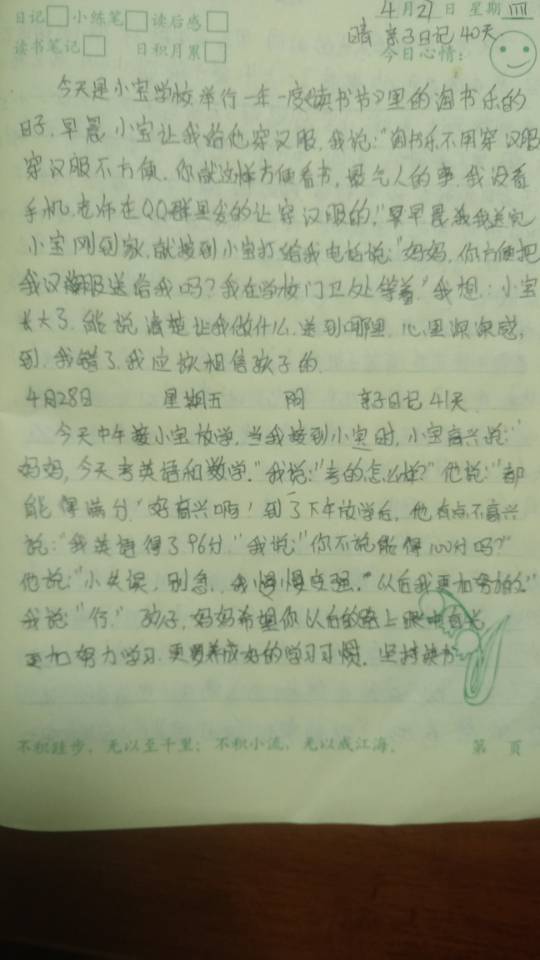 日记 小练笔 读后感 4月27日 星期四
晴 亲子日记40天
读书笔记 日积月累 今日心情：
今天是小宝学校举行一年一度《读书节》里的淘书乐的
日子，早晨小宝让我给他穿汉服，我说：“淘书乐不用穿汉服
穿汉服不方便，你就这样方便看书，最气人的事，我没看
手机，老师在QQ群里发的让穿汉服的，”早晨我送完
小宝刚到家，就接到小宝打给我电话说：“妈妈，你方便把
我汉服送给我吗？我在学校门卫处等着”我想：小宝
长大了，能说清楚让我做什么，送到哪里，心里深深感，
到，我错了，我应该相信孩子的
4月28日 星期五 阴 亲子日记41天
今天中午接小宝放学，当我接到小宝时，小宝高兴说：“
妈妈，今天考英语和数学。”我说：“考的怎么样？”他说：“都
能得满分”好高兴啊！到了下午放学后，他有点不高兴
说：“我英语得了96分。”我说：“你不说能得100分吗？”
他说：“小失误，别急，我慢慢变强。”以后我更加努力的”
我说：“行。”孩子，妈妈希望你以后的路上
更加努力学习，更要养成好的学习习惯，坚持读书
不积跬步，无以至千里；不积小流，无以成江海。 第 页